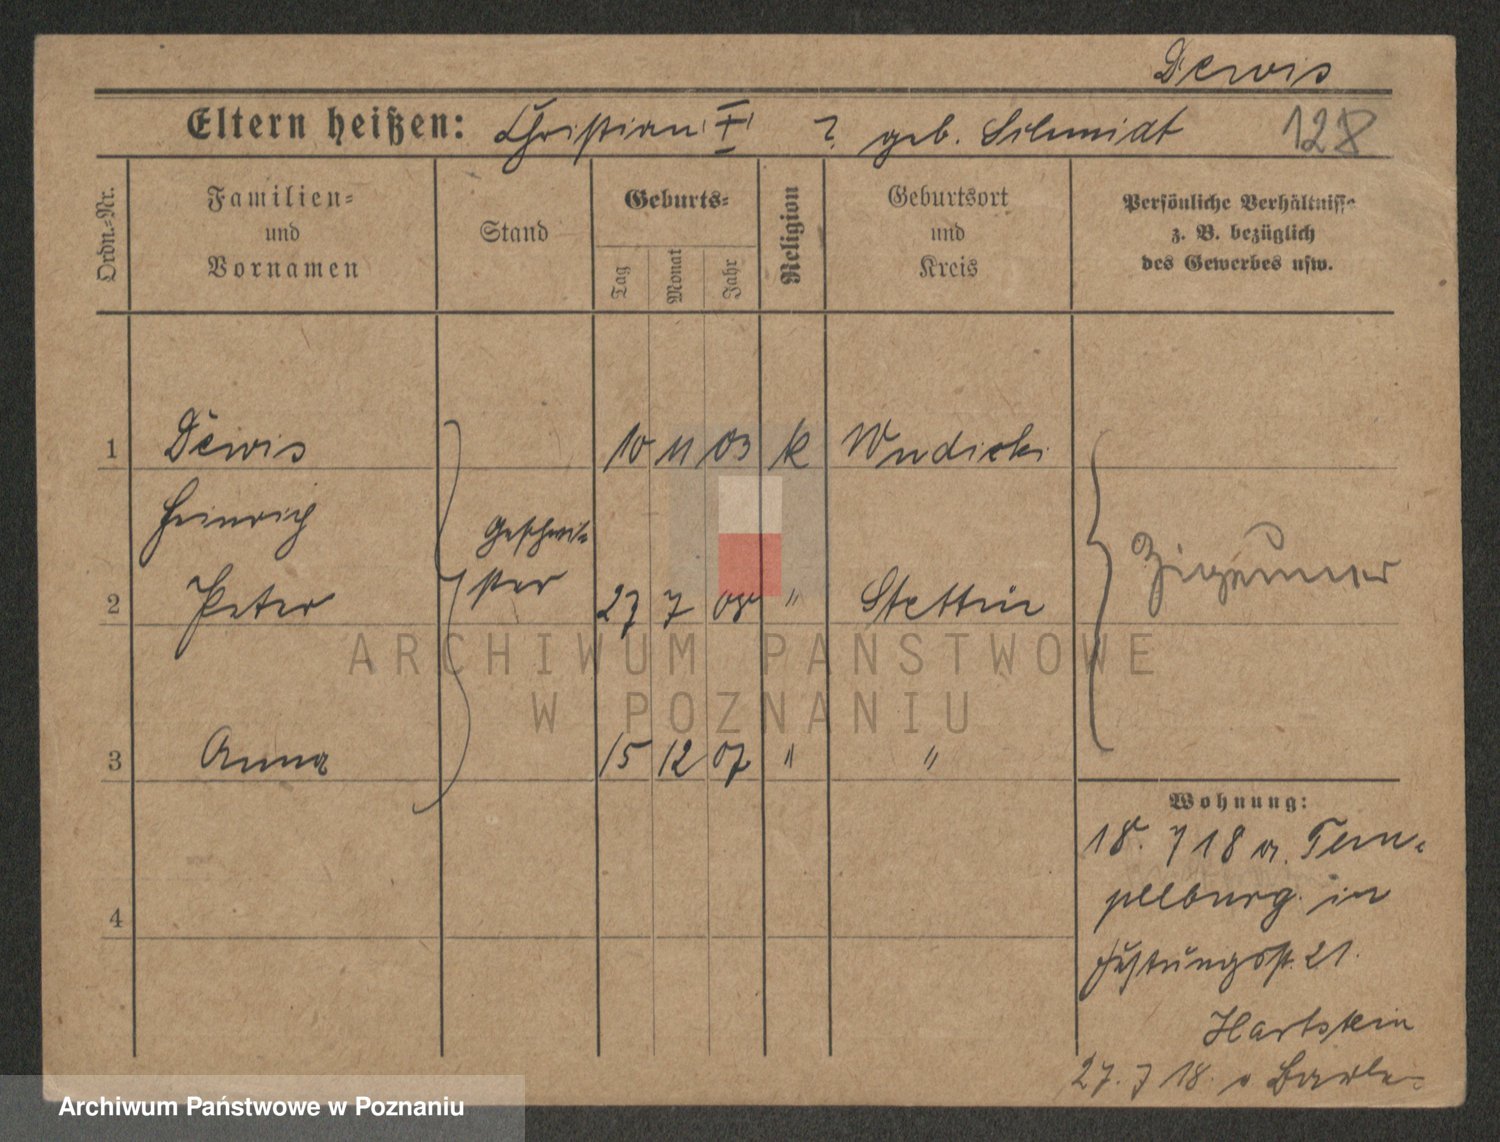 Dewis
Eltern heißen: Christian ? geb. Schmidt 128
Ordn.-Nr. Familien- und Vornamen Stand Geburts- Tag Monat Jahr Religion Geburtsort und Kreis Persönliche Verhältnisse z. B. bezüglich des Gewerbes usw.
1 Dewis 10 11 03 k
Heinrich Geschwi-
ster Zigeuner
2 Peter 27 7 08 " Stettin
ARCHIWUM PAŃSTWOWE
W POZNANIU
3 Anna 15 12 07 " "
Wohnung:
18. 7 18 a. Tem-
pelburg in
4
Festungsstr. 21.
Hartstein
27. 7 18.
Archiwum Państwowe w Poznaniu